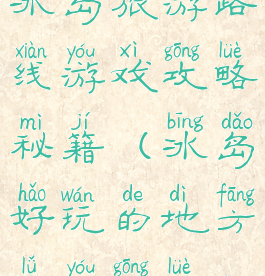 冰岛旅游路
xiàn yóu xì gōng lüè
线游戏攻略
mì jí bīng dǎo
秘籍(冰岛
hǎo wán de dì fāng
好玩的地方
lǚ yóu gōng lüè